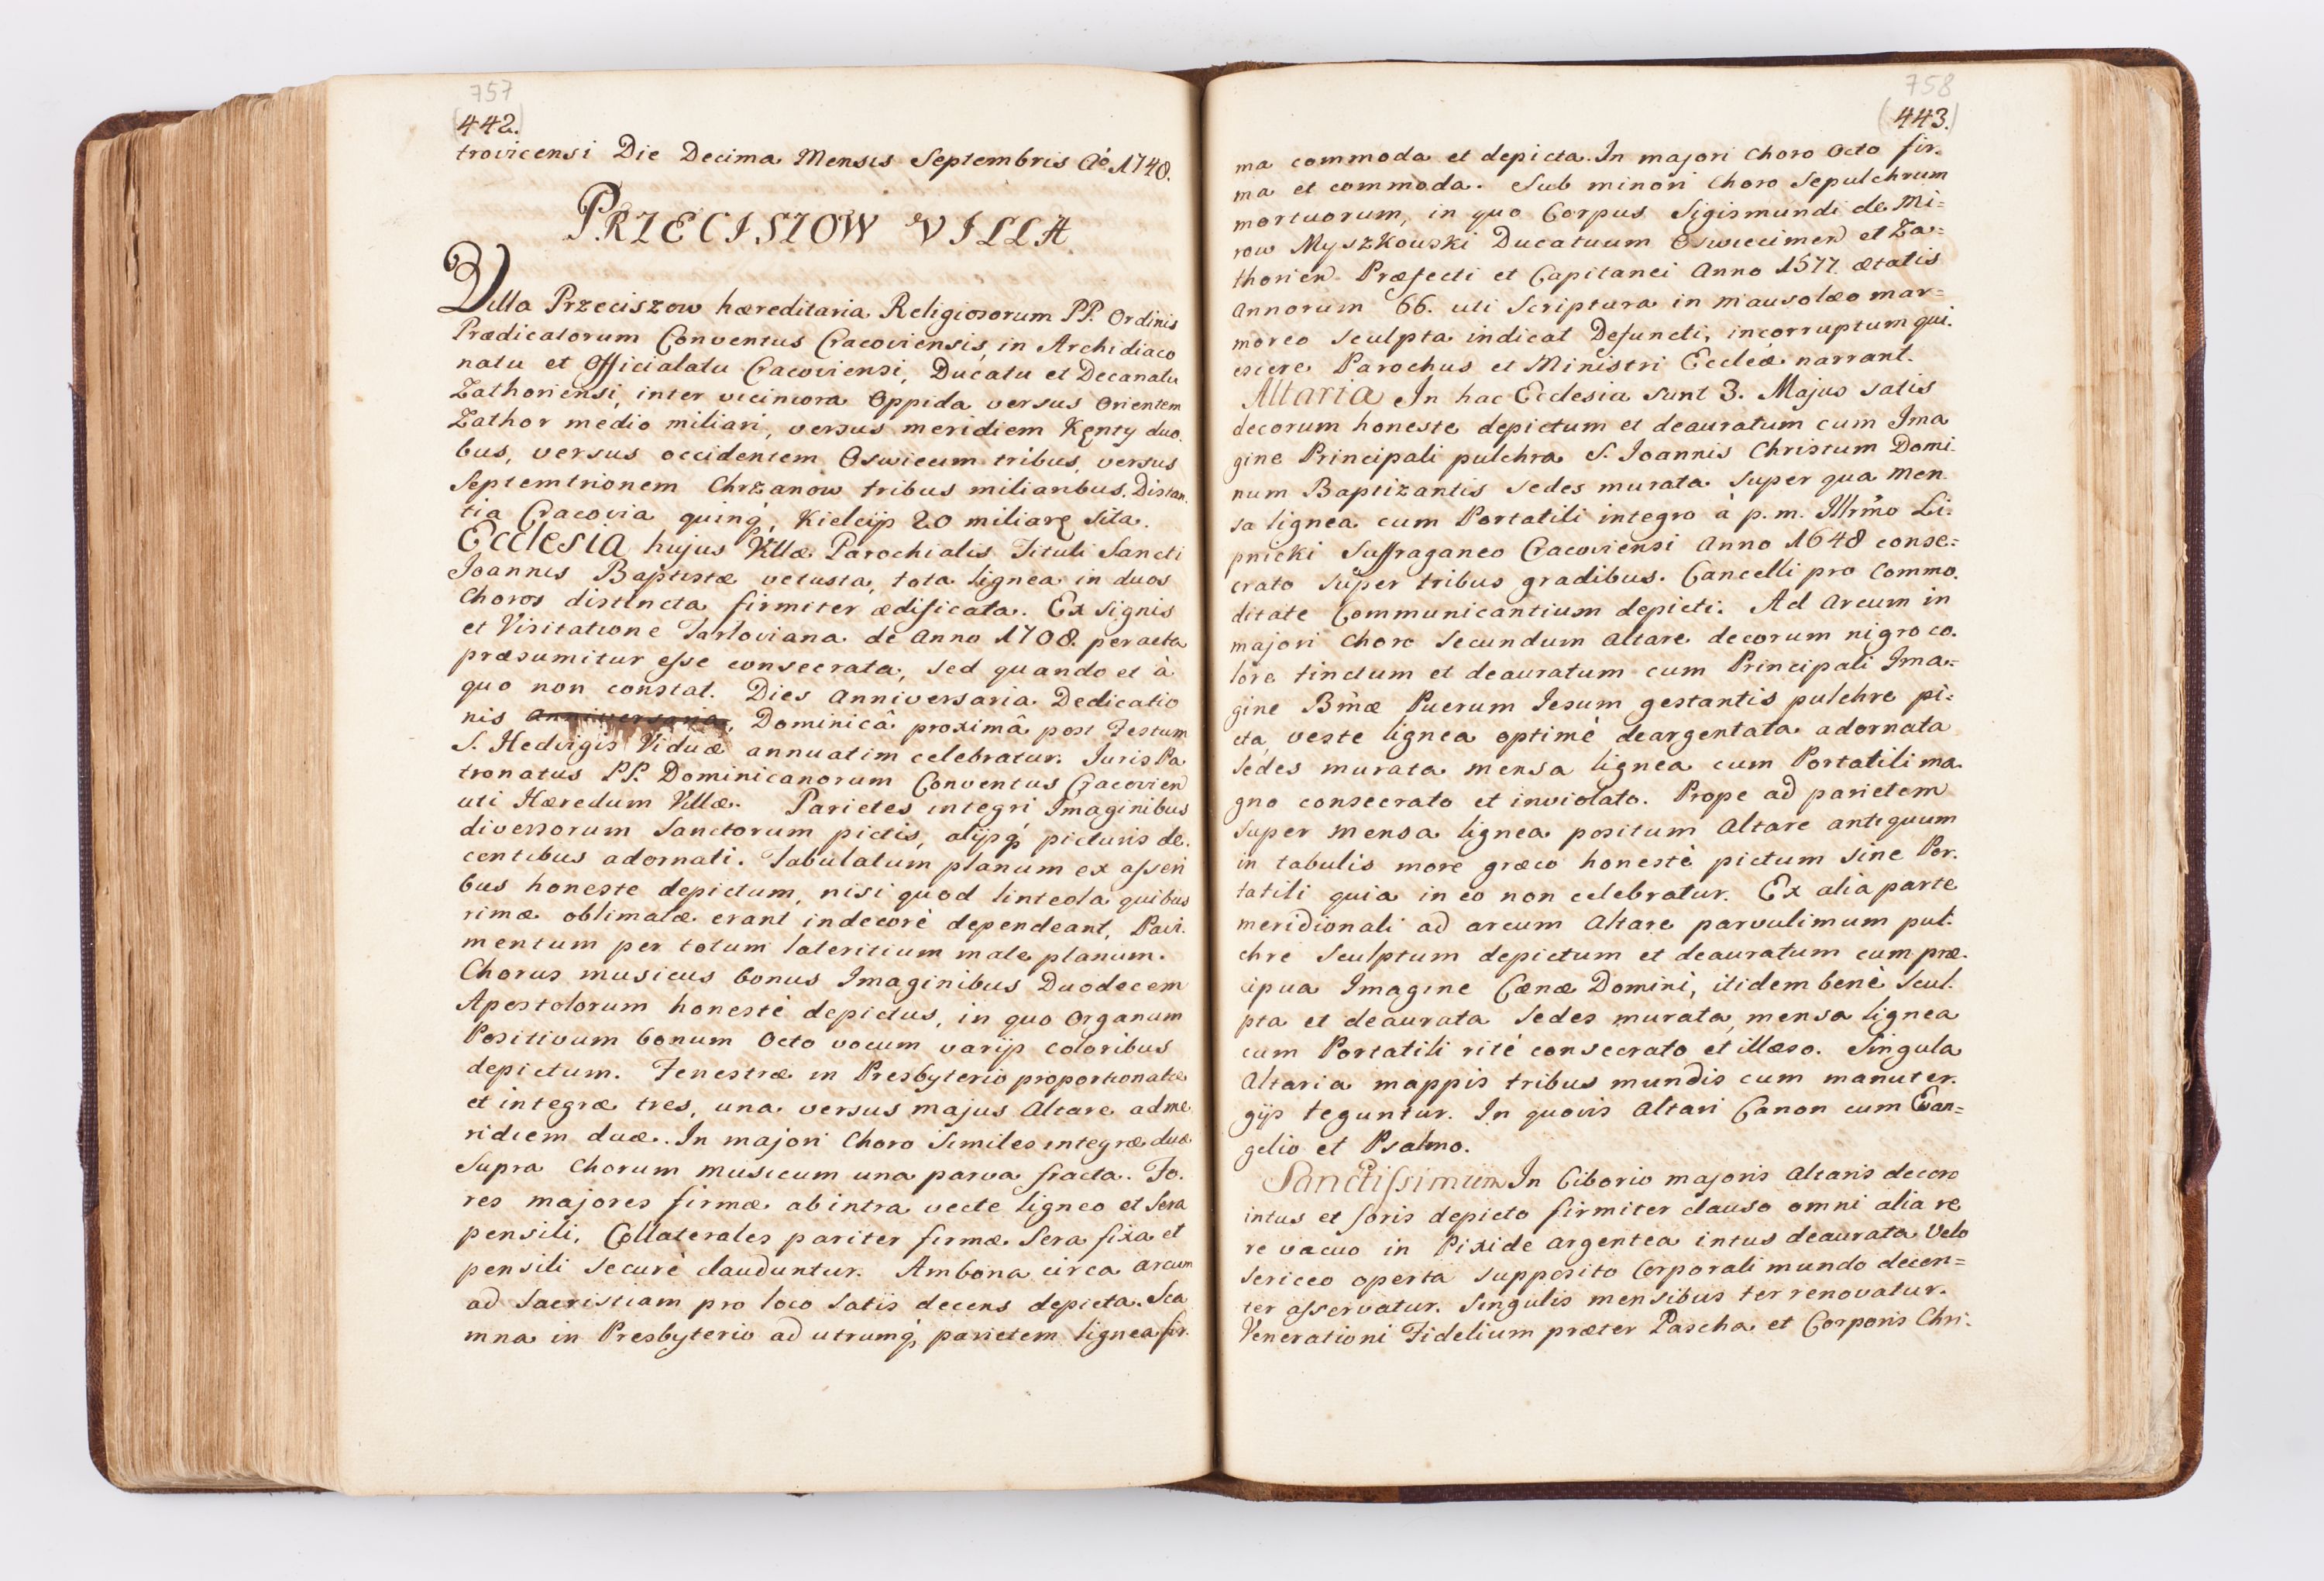 757
442.
trovicensi Die Decima Mensis Septembris Aō 1748.
PRZECISZOW VILLA
Villa Przeciszow hæreditaria Religiosorum PP. Ordinis
Prædicatorum Conventus Cracoviensis, in Archidiaco
natu et Officialatu Cracoviensi, Ducatu et Decanatu
Zathoriensi, inter viciniora Oppida versus Orientem
Zathor medio miliari, versus meridiem Kęnty duo
bus, versus occidentem Oswiecim tribus, versus
Septemtrionem Chrzanow tribus miliaribus. Distan
tia Cracovia quinq, Kielcijs 20 miliarę sita.
Ecclesia hujus Villæ Parochialis Tituli Sancti
Joannis Baptistæ vetusta, tota lignea in duos
Choros distincta firmiter ædificata. Ex signis
et Visitatione Tarloviana de Anno 1708. peracta
præsumitur esse consecrata, sed quando et à
quo non constat. Dies Anniversaria Dedicatio
nis Anniversaria, Dominicâ proximâ post Festum
S. Hedvigis Viduæ annuatim celebratur. Juris Pa
tronatus PP. Dominicanorum Conventus Cracovien
uti Hæredum Villæ. Parietes integri Imaginibus
diversorum Sanctorum pictis, alijsq picturis de.
centibus adornati. Tabulatum planum ex asseri
bus honeste depictum, nisi quod linteola quibus
rimæ oblimatæ erant indecorè dependeant, Pavi.
mentum per totum lateritium male planum.
Chorus musicus bonus Imaginibus Duodecem
Apostolorum honestè depictus, in quo Organum
Positivum bonum Octo vocum varijs coloribus
depictum. Fenestræ in Presbyterio proportionatæ
et integræ tres, una versus majus Altare ad me
ridiem duæ. In majori Choro Similes integræ duæ
Supra Chorum musicum una parva fracta. Fo.
res majores firmæ ab intra vecte ligneo et Sera
pensili, Collaterales pariter firmæ Sera fixa et
pensili securè clauduntur. Ambona circa arcum
ad Sacristiam pro loco satis decens depicta. Sca
mna in Presbyterio ad utrumq parietem lignea fir.
758
443.
ma commoda et depicta. In majori Choro Octo fir.
ma et commoda. Sub minori Choro Sepulchrum
mortuorum, in quo Corpus Sigismundi de Mi=
row Myszkowski Ducatuum Oswiecimen et Za=
thorien Præfecti et Capitanei Anno 1577. ætatis
Annorum 66. uti Scriptura in mausolæo mar=
moreo sculpta indicat Defuncti, incorruptum qui.
escere Parochus et Ministri Eccleæ narrant.
Altaria In hac Ecclesia sunt 3. Majus satis
decorum honeste depictum et deauratum cum Ima
gine Principali pulchra S. Joannis Christum Domi.
num Baptizantis Sedes murata super qua men
sa lignea cum Portatili integro à p. m. Illrmo Li.
pnicki Suffraganeo Cracoviensi Anno 1648 conse=
crato super tribus gradibus. Cancelli pro Commo.
ditate Communicantium depicti. Ad Arcum in
majori Choro Secundum Altare decorum nigro co.
lore tinctum et deauratum cum Principali Ima=
gine Bmæ Puerum Jesum gestantis pulchre pi=
cta, veste lignea optimè deargentata adornata
Sedes murata mensa lignea cum Portatili ma.
gno consecrato et inviolato. Prope ad parietem
super mensa lignea positum Altare antiquum
in tabulis more græco honestè pictum sine Por.
tatili quia in eo non celebratur. Ex alia parte
meridionali ad arcum Altare parvulimum pul.
chre Sculptum depictum et deauratum cum præ.
cipua Imagine Cænæ Domini, itidem benè Scul.
pta et deaurata Sedes murata, mensa lignea
cum Portatili ritè consecrato et illæso. Singula
Altaria mappis tribus mundis cum manuter.
gijs teguntur. In quovis Altari Canon cum Evan=
gelio et Psalmo.
Sanctissimum In Ciborio majoris Altaris decoro
intus et foris depicto firmiter clauso omni alia re
re vacuo in Pixide argentea intus deaurata Velo
Sericeo operta supposito Corporali mundo decen=
ter asservatur. Singulis mensibus ter renovatur.
Venerationi Fidelium præter Pascha et Corporis Chri.